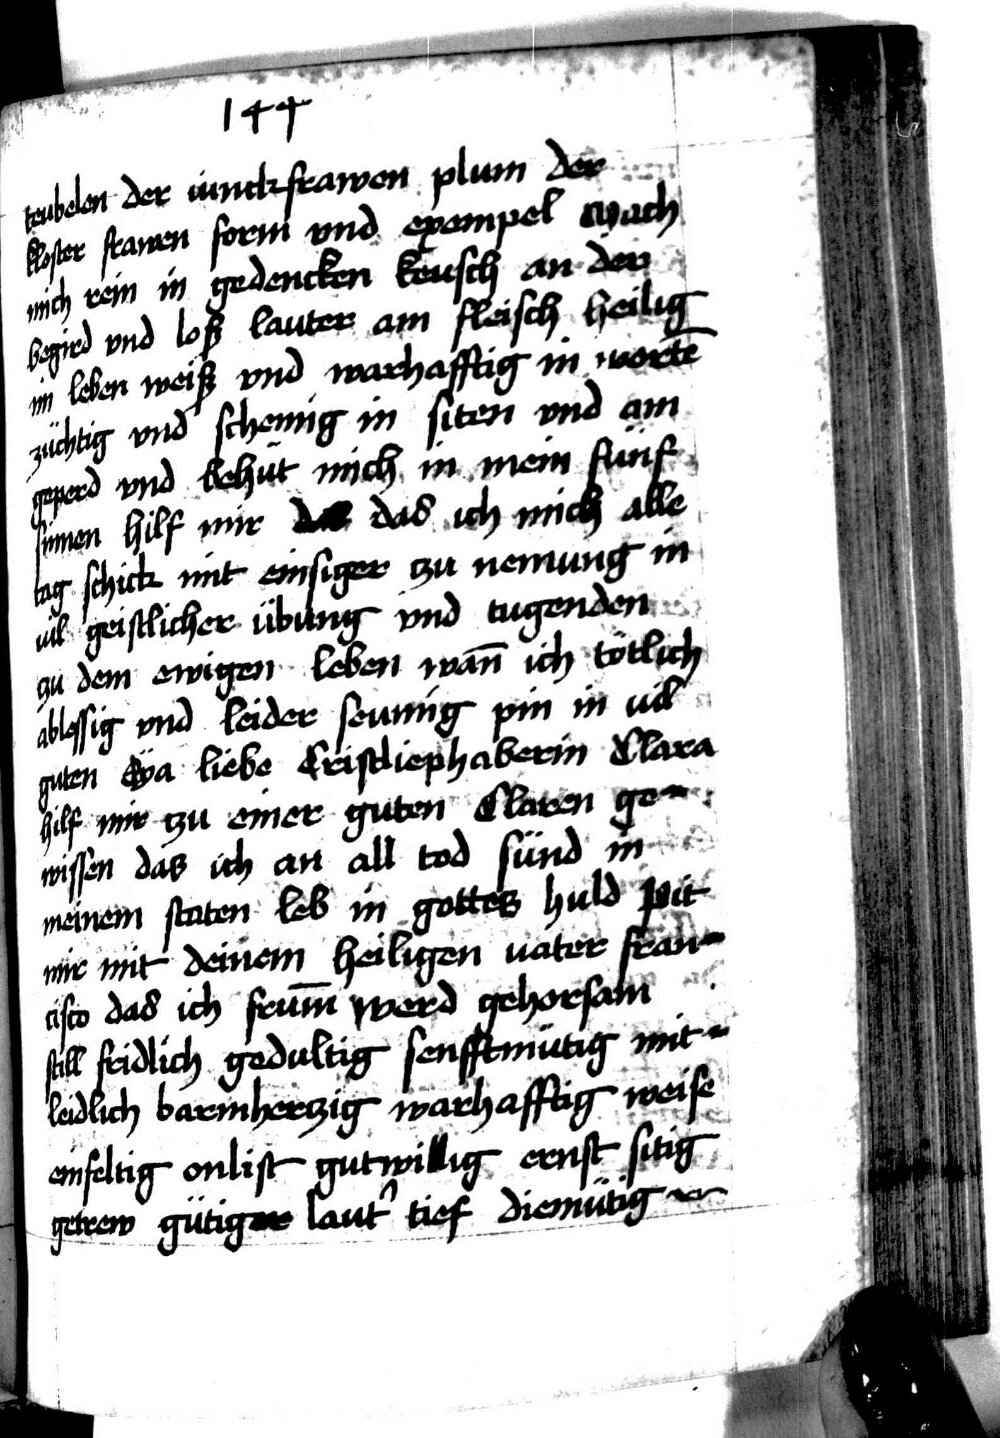 144
teubelen der iunckfrawen plum der
kloster frawen form vnd exempel Mach
mich rein in gedencken keusch an der
begird vnd loß lauter am fleisch heilig
im leben weiß vnd warhafftig in wortē
züchtig vnd schemig in siten vnd am
geperd vnd behüt mich in mein fünf
sinnen hilf mir das ich mich alle
tag schick mit einsiger zu nemung in
vil geistlicher übung vnd tugenden
zu dem ewigen leben wan̄ ich tötlich
ablessig vnd leider seumig pin in vil
guten Eya liebe Cristliephaberin Clara
hilf mir zu einer guten Claren ge-
wissen das ich an all tod sünd in
meinem staten leb in gottes huld Pit
mir mit deinem heiligen vater fran-
cisco das ich frum̄ werd gehorsam
still fridlich gedultig senfftmütig mit-
leidlich barmhertzig warhafftig weise
einfeltig onlist gutwillig ernst sitig
getrew gütiger laut' tief diemütig